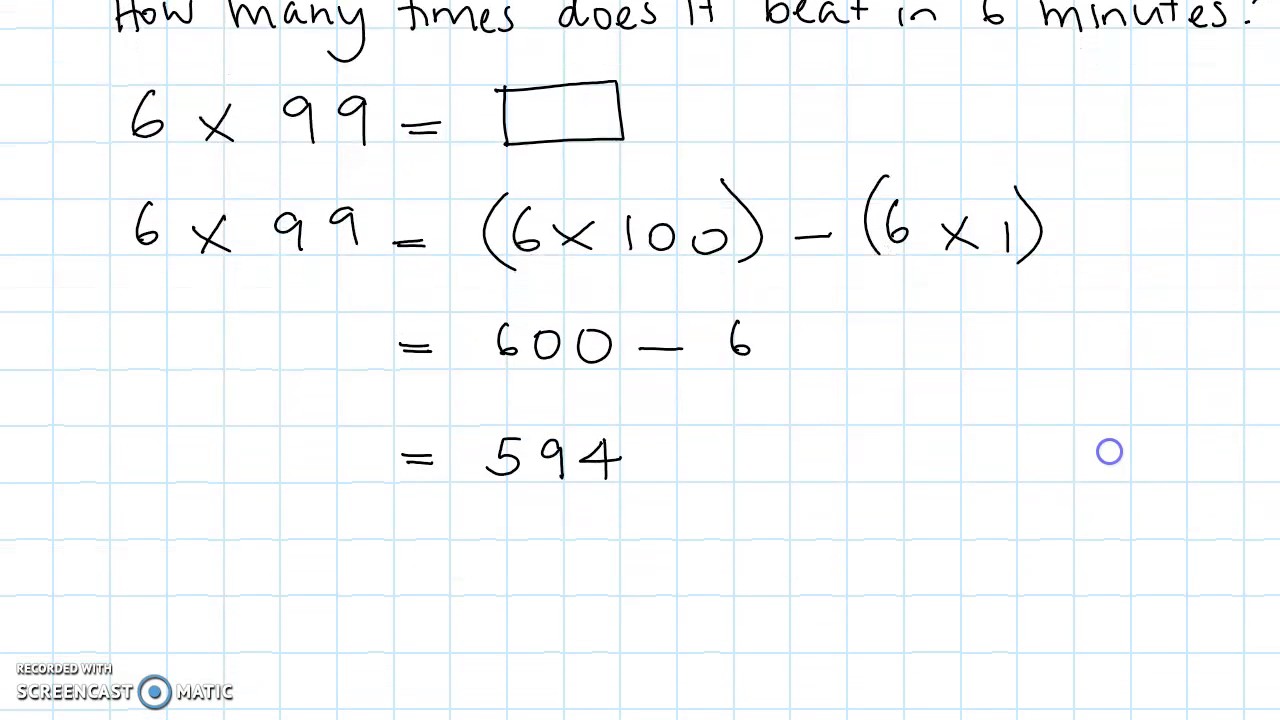 How many times does it beat in 6 minutes?
6 x 99 =
6 x 99 = (6 x 100) - (6 x 1)
= 600 - 6
= 594
RECORDED WITH
SCREENCAST MATIC